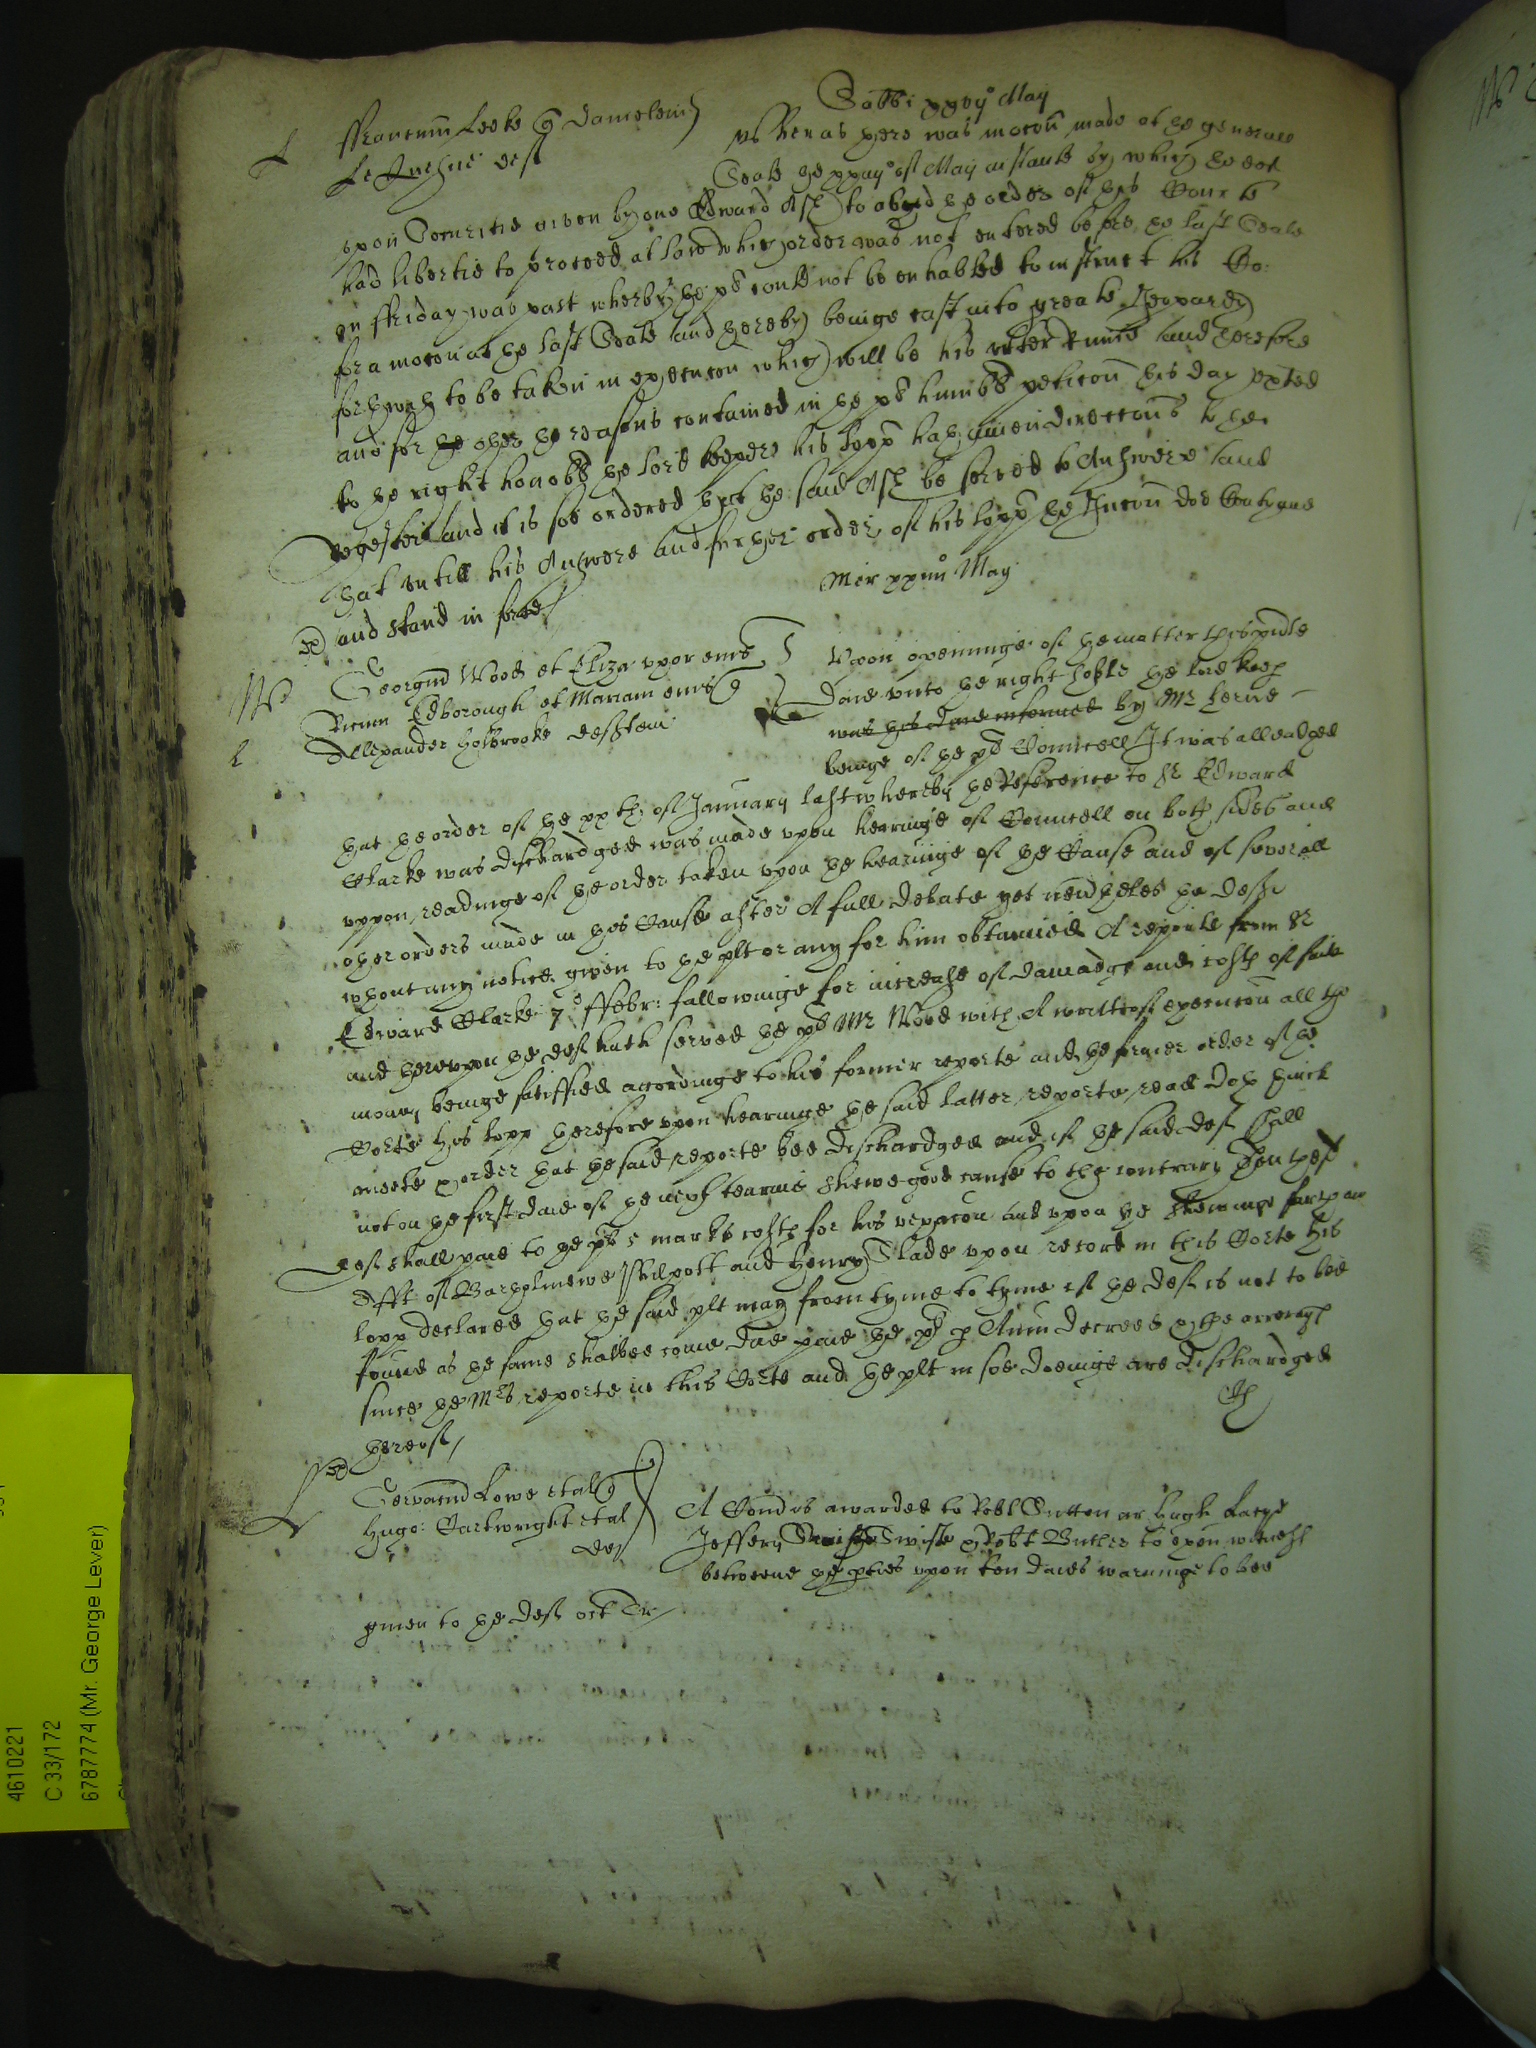 Sabbi xxvijº May
L ffrancum Leeke q Danielem
Le Quesne def
Whereas there was mocōn made at the generall
Seale the xxiijº of May instante by which the def
upon Securitie given by one Edward Ash to abyd the order of this Courte
had libertie to proceed at lawe which order was not entered before the last Seale
on ffriday was past wherby the pƚ could not be enhabled to instruct his Co:
for a mocōn at the last Seale and thereby beinge cast into greate Jeopardy
forthwth to be taken in execucōn which will be his utter Ruine and therefore
and for the other the reasons contained in the pƚ humble peticōn this day pxted
to the right honoble the lord keeper his lopp hath given direccōns to the
Register and it is soe ordered that the said Ash be served to Answere and
that untill his Answere and further order of his lopp the Iniuncōn doe Contynue
and stand in force
Mer xxiiijº May
Georgiū Wood et Eliza uxor eius
Ricum Edborough et Mariam eius q
Allexander Holbrooke deftem
Upon openinge of the matter this pnte
Daie unto the right hoble the lord keep
was this daie informed by Mr Herne
beinge of the pƚ Councell It was alleadged
that the order of the xxth of January last whereby the Reference to Sr Edward
Clarke was dischardged was made upon hearinge of Councell on both sides and
uppon readinge of the order taken upon the hearinge of the Cause and of severall
other orders made in this Cause after A full debate yet nevertheles the deft
wthout any notice given to the plt or any for him obtained A reporte from Sr
Edward Clarke 7º ffebr: followinge for increase of damadge and costs of suite
and thereupon the def hath served the pƚ Mr Wood with A writt of execucōn all the
money beinge satisfied accordinge to his former reporte and the former order of the
Corte His lopp therefore upon hearinge the said latter reporte read doth thinck
meete & order that the said reporte bee dischardged and if the said def shall
not on the first daie of the next tearme shewe good cause to the contrary then the
def shall paie to the pƚ 5 marks costs for his vexacōn And upon the shewinge forth an
Afft of Bartholmewe Philpott and Henry Slade upon record in this Corte his
lopp declared that the said plt may from tyme to tyme if the def is not to bee
found as the same shalbee come due paie the p Anm decreed & the arreragℓ
since the Mrs reporte in this Corte and the plt in soe doeinge are dischardged
thereof
L Gervasiū Lowe et al q
Hugo: Cartwright et al
def
A Comds awarded to Robt Sutton ar Hugh
Jeffery Swifte & Robt Butler to exam witnesℓ
betweene the pties upon ten daies warninge to bee
given to the def oct Tr
4610221
C 33/172
6787774 (Mr. George Lever)